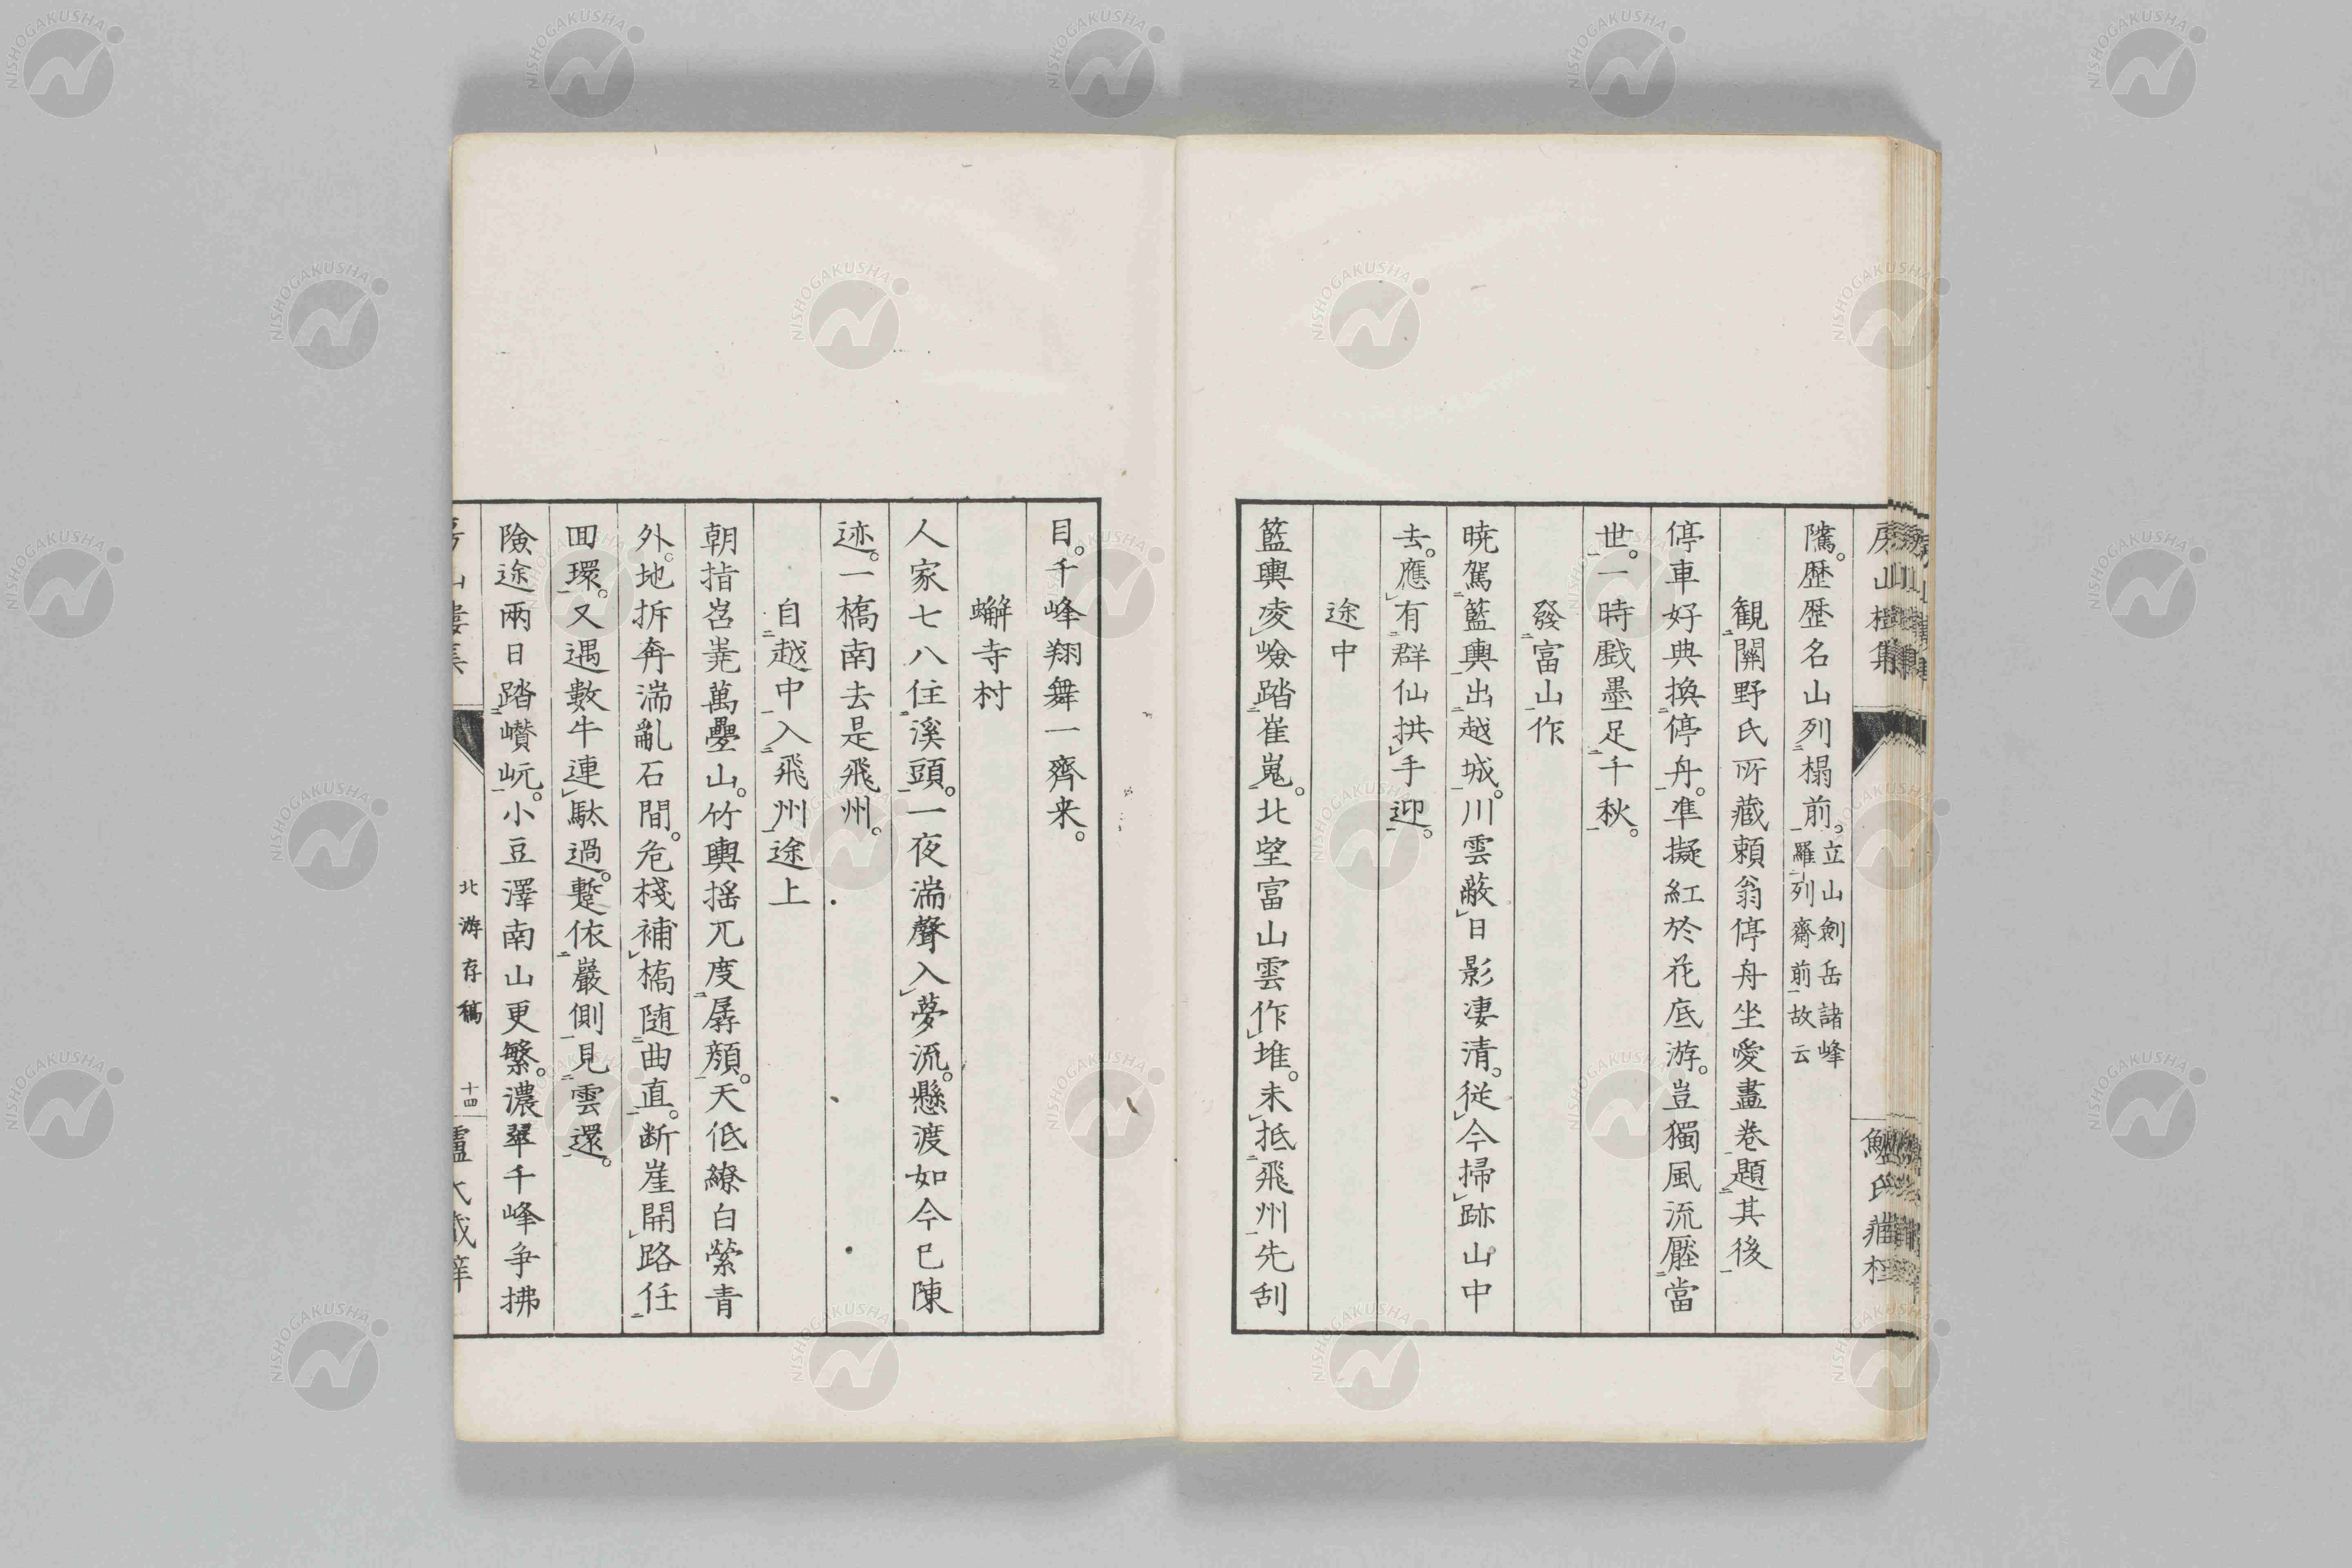 隲。歷歷名山列榻前。立山劍岳諸峰羅列齋前故云
觀關野氏所藏賴翁停舟坐愛畫卷題其後
停車好典換停舟。準擬紅於花底游。豈獨風流壓當
世。一時戲墨足千秋。
發富山作
曉駕籃輿出越城。川雲蔽日影凄清。從今掃跡山中
去。應有群仙拱手迎。
途中
籃輿凌嶮踏崔嵬。北望富山雲作堆。未抵飛州先刮
目。千峰翔舞一齊来。
蠏寺村
人家七八住溪頭。一夜湍聲入夢流。懸渡如今已陳
迹。一橋南去是飛州。
自越中入飛州途上
朝指岧嶤萬疊山。竹輿搖兀度孱顏。天低繚白縈青
外。地拆奔湍亂石間。危棧補橋随曲直。断崖開路任
囬環。又遇數牛連駄過。蹔依巖側見雲還。
險途兩日踏巑岏。小豆澤南山更繁。濃翠千峰争拂
北游存稿
十四
NISHOGAKUSHA